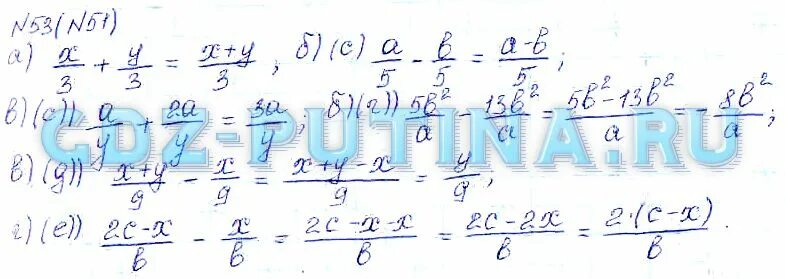 N53(N51)
а) x/3 + y/3 = (x+y)/3 , б)(с) a/5 - b/5 = (a-b)/5 ;
в)(с)) a/y + 2a/y = 3a/y ; б)(г)) 5b²/a - 13b²/a = (5b²-13b²)/a = - 8b²/a ;
в)(д)) (x+y)/9 - x/9 = (x+y-x)/9 = y/9 ;
г)(е)) (2c-x)/b - x/b = (2c-x-x)/b = (2c-2x)/b = 2·(c-x)/b .
GDZ-PUTINA.RU